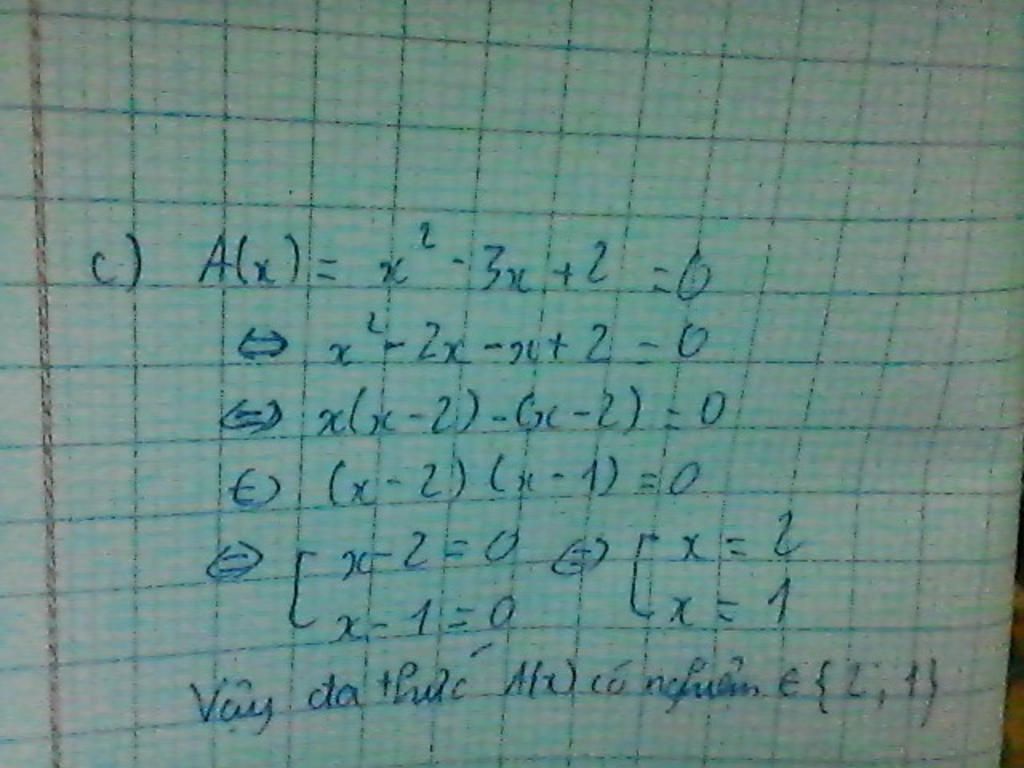 c) A(x) = x² - 3x + 2 = 0
⇔ x² - 2x - x + 2 = 0
⇔ x(x - 2) - (x - 2) = 0
⇔ (x - 2) (x - 1) = 0
⇔ [ x - 2 = 0 ⇔ [ x = 2
x - 1 = 0 x = 1
Vậy đa thức A(x) có nghiệm ∈ {2; 1}